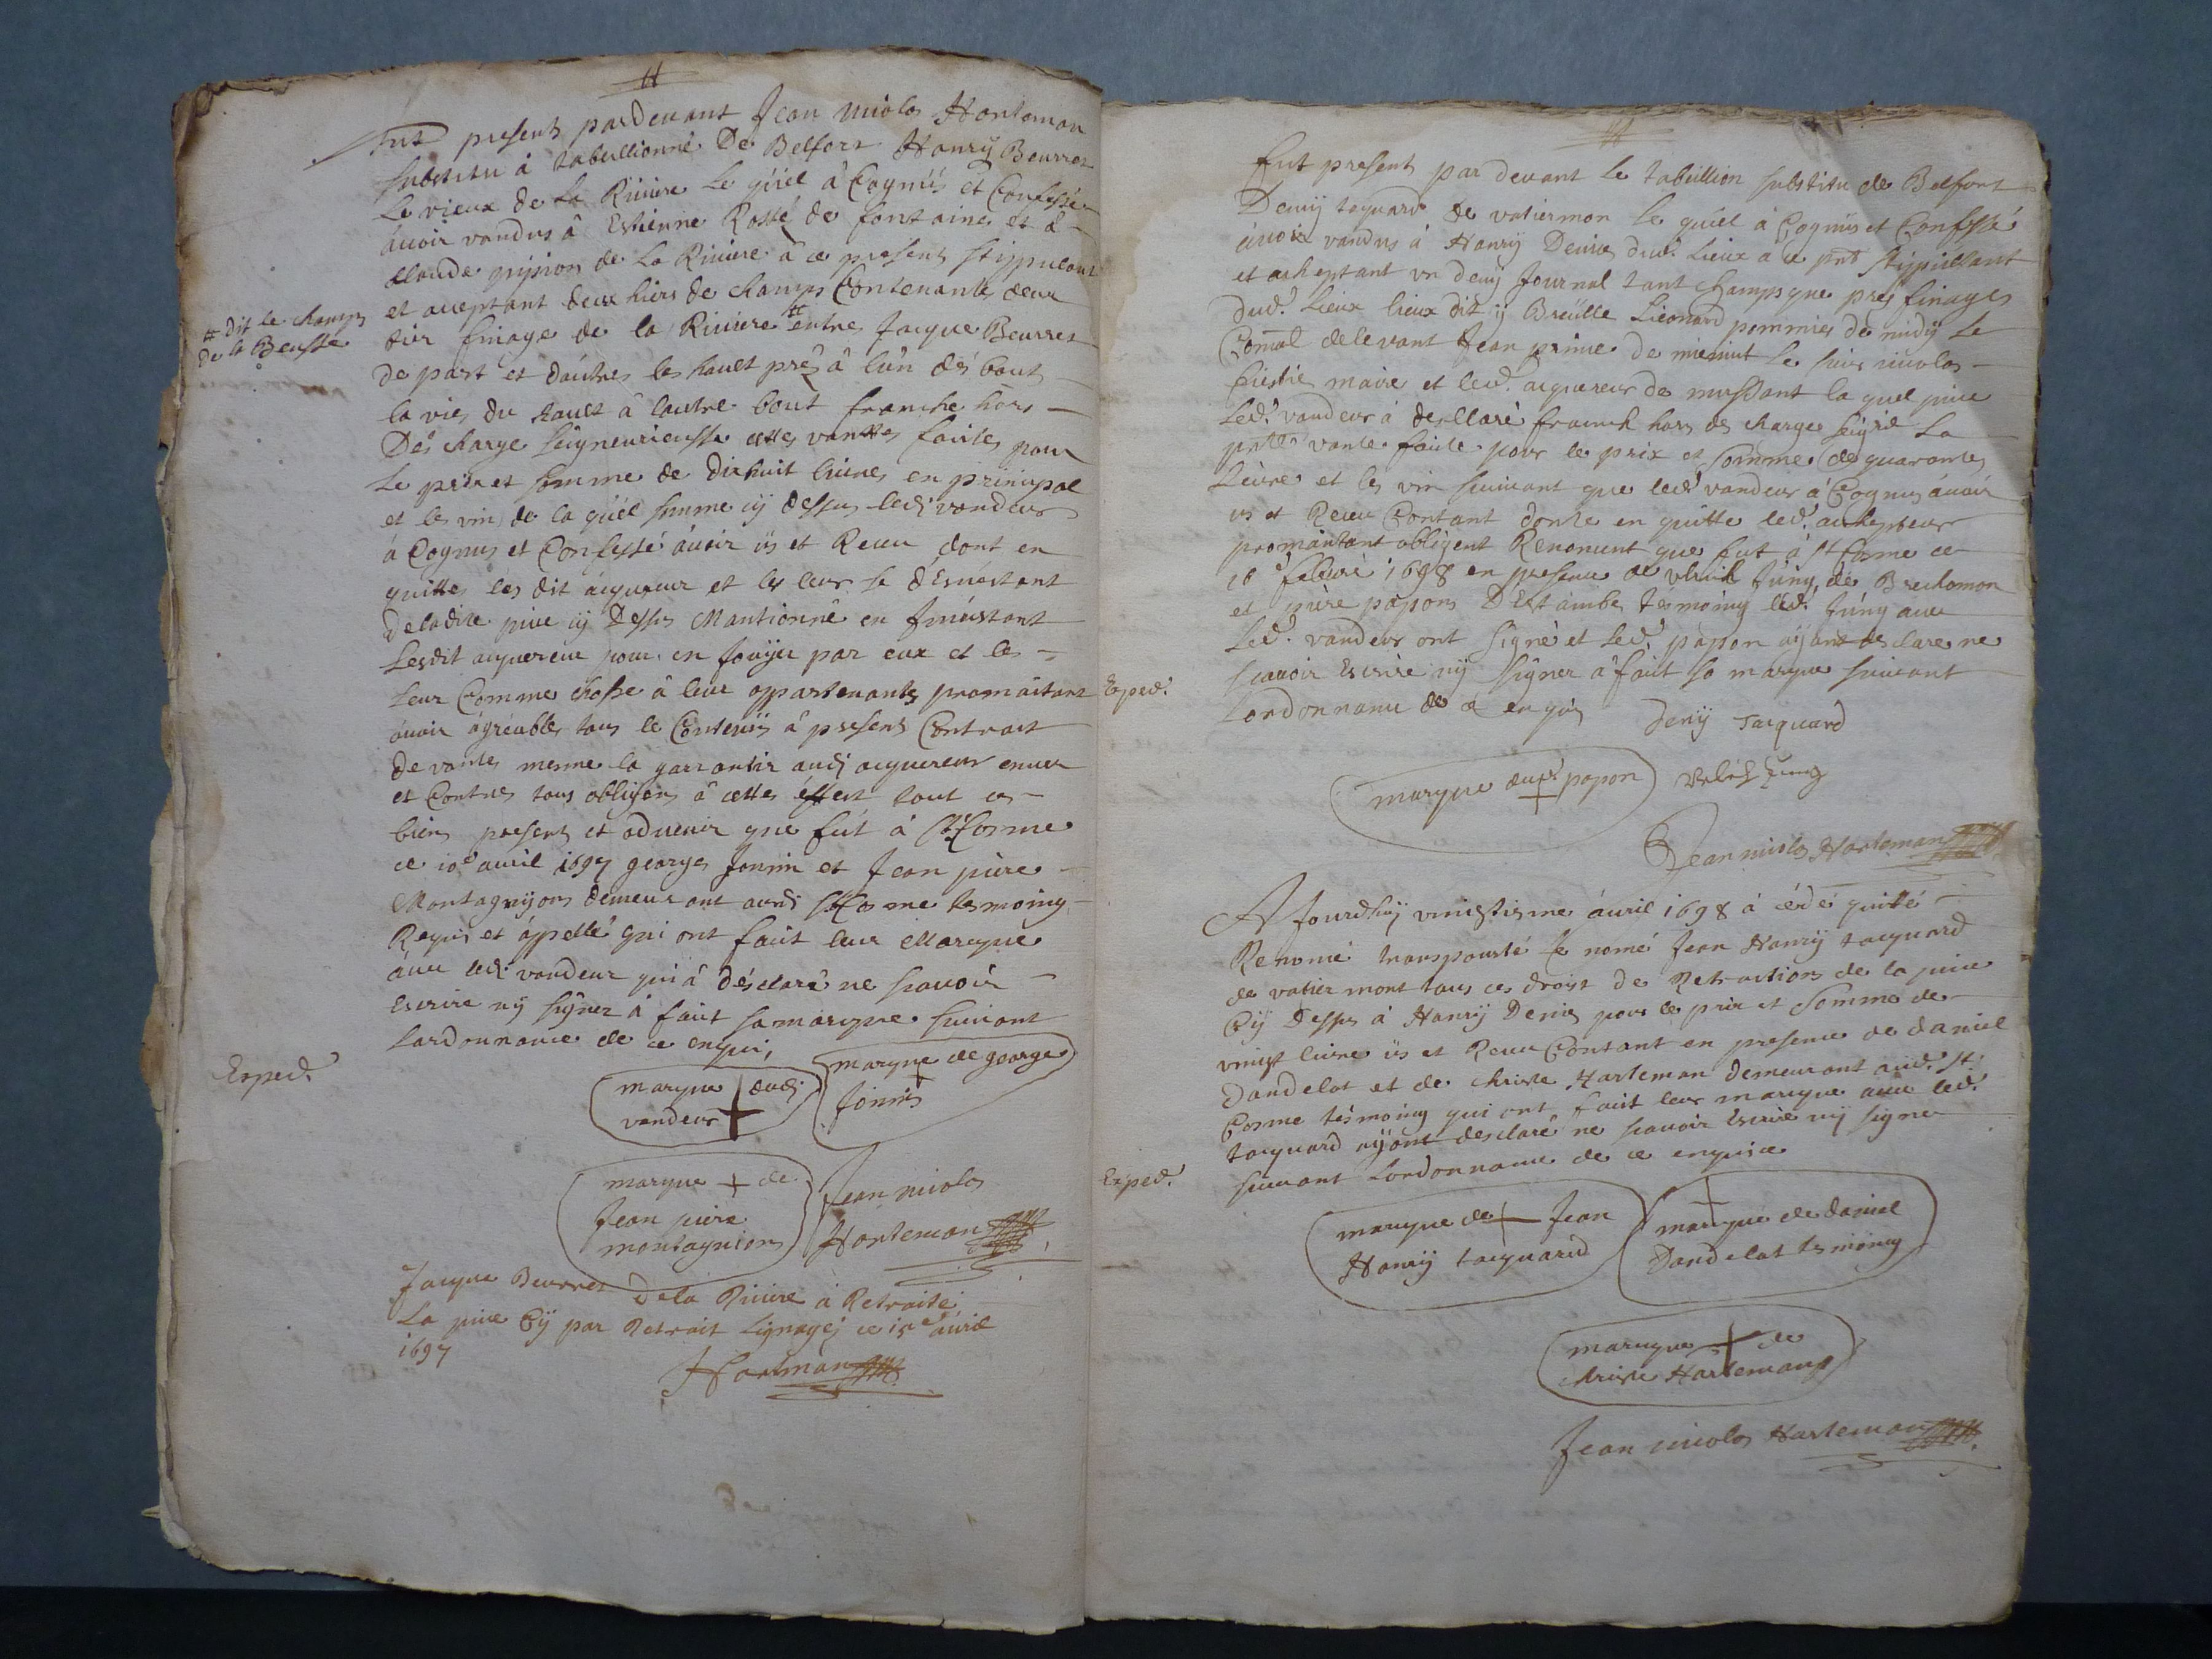 Fut presents pardevant Jean nicolas Harteman
substitu à tabellionné De Belfort Hanrÿ Beurret
Le vieux de La Riviere Le quel à Cognus et Confessé
avoir vandus â Estienne Rossé de fontaine et â
Claude de La Riviere â ce present stippulant
et aceptant deux hiers de champs Contenants deux
# dit le champs
de la Beusse
tier finage de la Riviere # entre Jacque Beurret
de part et dautres les hault prés â lun dês bout
la vie du hault â lautre bout franche hors
Dês charge seigneurieusse cette vantte faite pour
Le prix et somme de dixhuit livres en principal
et les vin de la quel somme cÿ dessus ledi vandeur
à Cognus et Confessé âvoir üs et Receu dont en
quitte lês dit âcquereur et les leur se dêsvêstant
De ladite piece cÿ Dessus Mantionnê en jnvêstant
Lesdit acquereur pour en jouÿr par eux et les
leur Comme chosse â leur appartenante promaitant
avoir âgréable tous le Contenüs â present Contract
de vante mesme la garrantir audi acquereur enver
et Contre tous obligant â cette êffect tout ces
biens present et advenir que fut â St Cosme
ce 10e avril 1697 george Jonin et Jean piere
Montagnÿon demeurant audi St Cosme tesmoing
Requis et âppellé qui ont fait leur Marque
âvec ledi vandeur qui â dêsclaré ne scavoir
escrire nÿ signer â fait sa marque suivant
Lordonnance de ce enqui,
Exped.
marque + dudi
vandeur
marque de george
+
Jonin
marque + de
Jean piere
montagnion
Jean nicolas
Harteman
Jacque Beurret De la Riviere à Retraité
La piece Cÿ par Retrait Lignagej ce 15e avril
1697
Hartman
Fut present par devant Le tabellion substitu de Belfort
Denÿ taquard de vatiermon le quel à Cognus et Confessé
âvoir vandus à Hanrÿ Denie dud. Lieux a ce pnt stippullant
et acheptant un demÿ Journal tant champs que prés finages
dud. Lieux lieux dit ÿ Breülle Lieonard pommier de midÿ Le
Comal de levant Jean prime de mienuit Le sieur nicolas
maire et led. acquereur de mussant la quel piece
Led. vandeur à desllaré franch hors des charge seigrie La
pnte vante faite pour le prix et somme de quarante
Livre et les vin suivant que led. vandeur a Cognus avoir
us et Receu Contant donte en quitte led. achepteur
promaittant obligent Renoncent que fut â St Cosme ce
16e febvrie 1698 en presence de vlrich Jung de Brechomon
et piere papon DEstâmbe tésmoing led. Jung avec
Led. vandeur ont signé et led. papon ayant desclare ne
scavoir Escrire nÿ signer â fait sa marque suivant
Exped.
Lordonnance de ce enquis
Denÿ Jacquard
marque dud. + papon
Vlrich Jung
Jean nicolas Harteman
A Jourdhuÿ vingtisme âvril 1698 à cêdé quitté
Renoncé transpourté Le nomé Jean Hanrÿ tacquard
de vatiermont tous ces droist de Retraction de la piece
Cÿ Dessus â Hanrÿ Denie pour le prix et somme de
vingt livre üs et Receu Contant en presence de daniel
Dandelot et de christe Harteman demeurant aud. St.
Cosme tésmoing qui ont fait leur marque avec led.
tacquard aÿant desclaré ne scavoir Escrire nÿ signer
Exped.
suivant Lordonnance de ce enquice
marque de + Jean
Hanrÿ tacquard
+
marque de daniel
Dandelot tesmoing
marque + de
christe Harteman
Jean nicolas Harteman